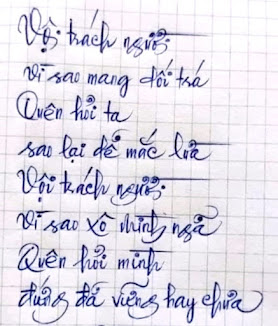 Vội trách người
Vì sao mang dối trá
Quên hỏi ta
sao lại để mắc lừa
Vội trách người
Vì sao xô mình ngã
Quên hỏi mình
đứng đã vững hay chưa